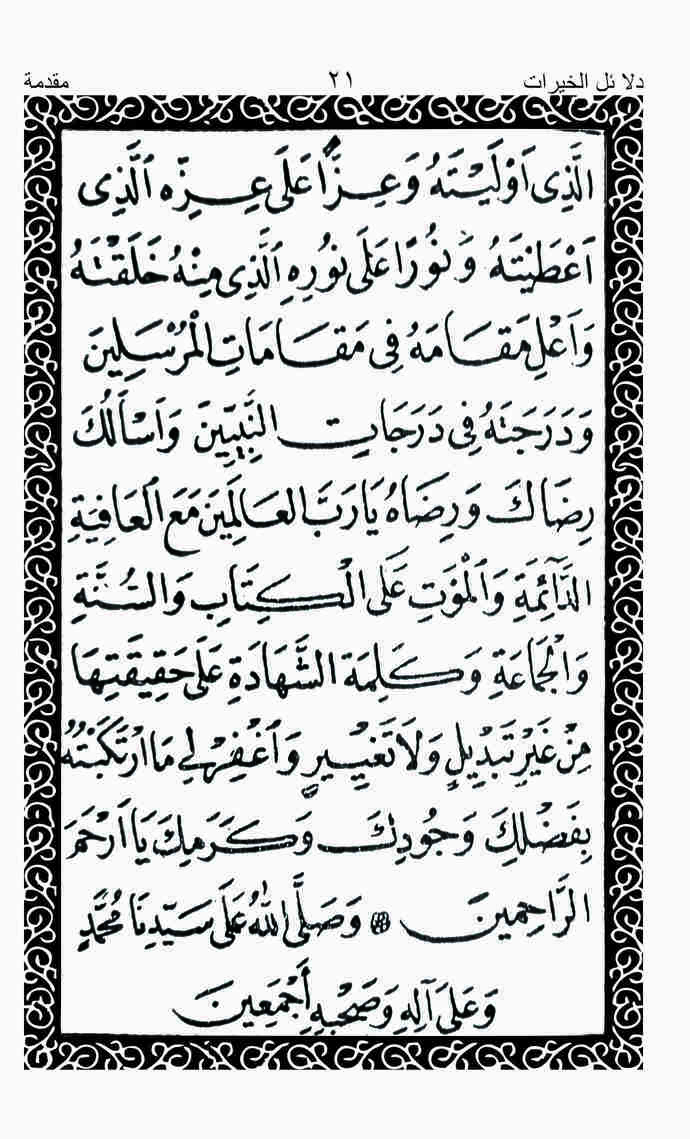 دلائل الخيرات ٢١ مقدمة
الَّذِى اَوْلَيْتَهُ وَعِزًّا عَلَى عِزِّهِ الَّذِى
اَعْطَيْتَهُ وَنُورًا عَلَى نُورِهِ الَّذِى مِنْهُ خَلَقْتَهُ
وَاَعْلِ مَقَامَهُ فِى مَقَامَاتِ الْمُرْسَلِينَ
وَدَرَجَتَهُ فِى دَرَجَاتِ النَّبِيِّينَ وَاَسْأَلُكَ
رِضَاكَ وَرِضَاهُ يَا رَبَّ العَالَمِينَ مَعَ الْعَافِيَةِ
الدَّآئِمَةِ وَالْمَوْتِ عَلَى الْكِتَابِ وَالسُّنَّةِ
وَالْجَمَاعَةِ وَكَلِمَةِ الشَّهَادَةِ عَلَى حَقِيقَتِهَا
مِنْ غَيْرِ تَبْدِيلٍ وَلَا تَغْيِيرٍ وَاغْفِرْ لِي مَا ارْتَكَبْتُهُ
بِفَضْلِكَ وَجُودِكَ وَكَرَمِكَ يَا اَرْحَمَ
الرَّاحِمِينَ ۞ وَصَلَّى اللهُ عَلَى سَيِّدِنَا مُحَمَّدٍ
وَعَلَى آلِهِ وَصَحْبِهِ أَجْمَعِينَ